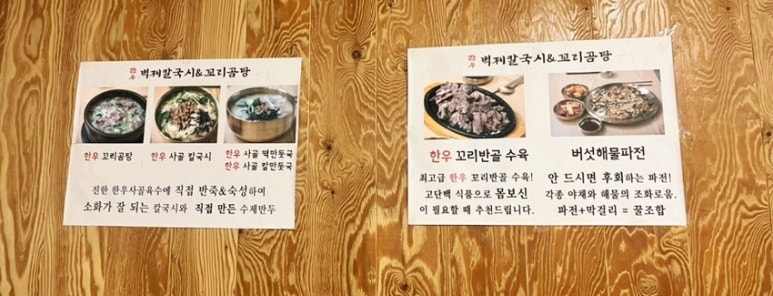 한우 벽제칼국시&꼬리곰탕
한우 꼬리곰탕
한우 사골 칼국시
한우 사골 떡만둣국
한우 사골 칼만둣국
진한 한우사골육수에 직접 반죽&숙성하여
소화가 잘 되는 칼국시와 직접 만든 수제만두
한우 벽제칼국시&꼬리곰탕
한우 꼬리반골 수육
최고급 한우 꼬리반골 수육!
고단백 식품으로 몸보신
이 필요할 때 추천드립니다.
버섯해물파전
안 드시면 후회하는 파전!
각종 야채와 해물의 조화로움.
파전+막걸리 = 꿀조합